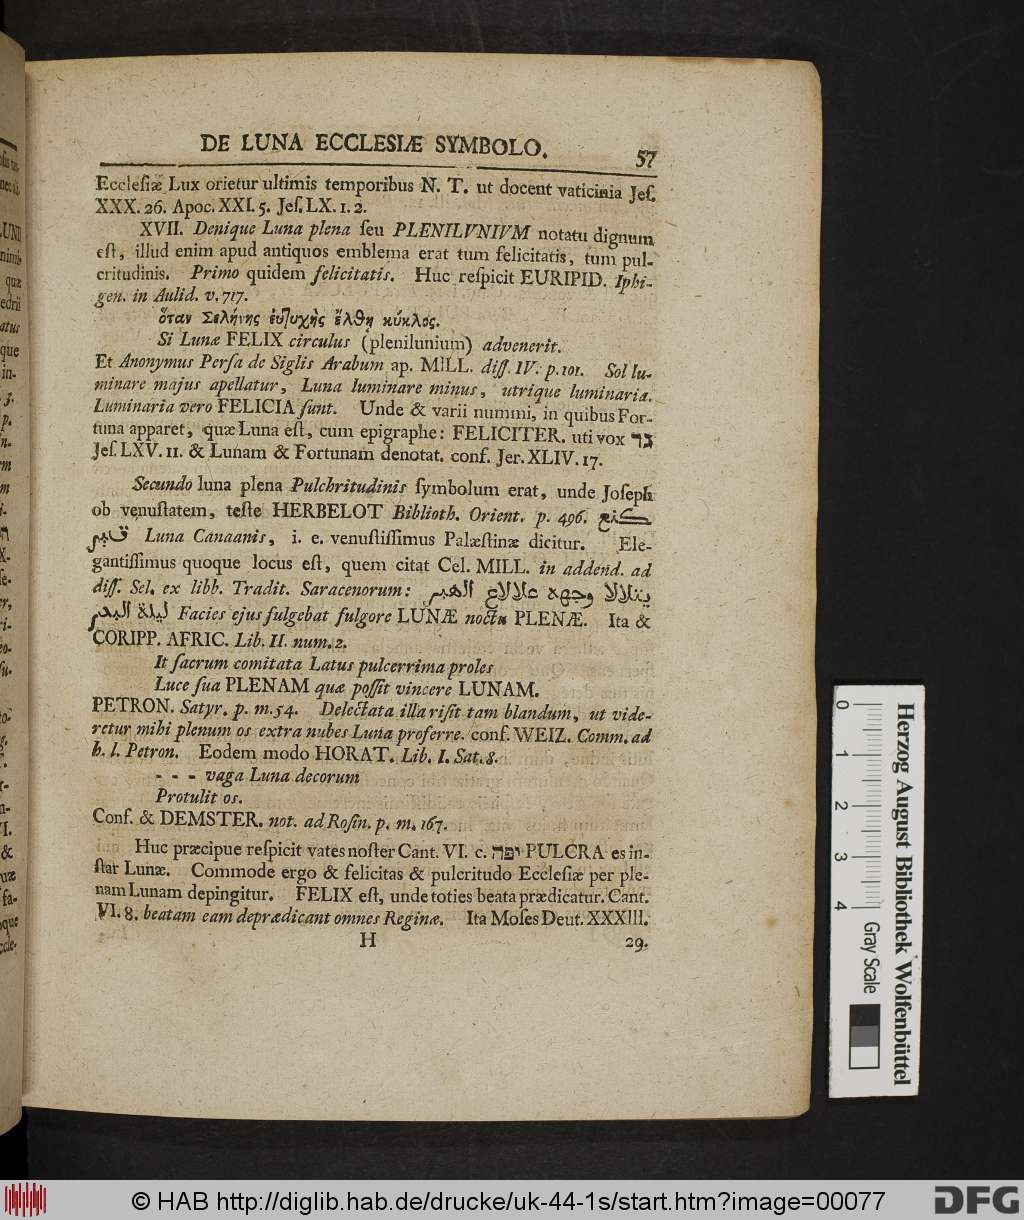 DE LUNA ECCLESIÆ SYMBOLO.
57
Ecclesiæ Lux orietur ultimis temporibus N. T. ut docent vaticinia Jeſ.
XXX. 26. Apoc. XXI. 5. Jeſ. LX. 1. 2.
XVII. Denique Luna plena ſeu PLENILVNIVM notatu dignum
eſt, illud enim apud antiquos emblema erat tum felicitatis, tum pul-
critudinis. Primo quidem felicitatis. Huc reſpicit EURIPID. Iphi-
gen. in Aulid. v. 717.
ὅταν Σελήνης ἐυτυχὴς ἔλθῃ κύκλος.
Si Lunæ FELIX circulus (plenilunium) advenerit.
Et Anonymus Perſa de Siglis Arabum ap. MILL. diſſ. IV. p. 101. Sol lu-
minare majus apellatur, Luna luminare minus, utrique luminaria.
Luminaria vero FELICIA ſunt. Unde & varii nummi, in quibus For-
tuna apparet, quæ Luna eſt, cum epigraphe: FELICITER. uti vox גד
Jeſ. LXV. 11. & Lunam & Fortunam denotat. conf. Jer. XLIV. 17.
Secundo luna plena Pulchritudinis ſymbolum erat, unde Joſeph
ob venuſtatem, teſte HERBELOT Biblioth. Orient. p. 496.
Luna Canaanis, i. e. venuſtiſſimus Palæſtinæ dicitur. Ele-
gantiſſimus quoque locus eſt, quem citat Cel. MILL. in addend. ad
diſſ. Sel. ex libb. Tradit. Saracenorum:
Facies ejus fulgebat fulgore LUNÆ noctu PLENÆ. Ita &
CORIPP. AFRIC. Lib. II. num. 2.
It ſacrum comitata Latus pulcerrima proles
Luce ſua PLENAM quæ poſſit vincere LUNAM.
PETRON. Satyr. p. m. 54. Delectata illa riſit tam blandum, ut vide-
retur mihi plenum os extra nubes Luna proferre. conf. WEIZ. Comm. ad
h. l. Petron. Eodem modo HORAT. Lib. I. Sat. 8.
- - - vaga Luna decorum
Protulit os.
Conf. & DEMSTER. not. ad Roſin. p. m. 167.
Huc præcipue reſpicit vates noſter Cant. VI. c. יפה PULCRA es in-
ſtar Lunæ. Commode ergo & felicitas & pulcritudo Eccleſiæ per ple-
nam Lunam depingitur. FELIX eſt, unde toties beata prædicatur. Cant.
VI. 8. beatam eam deprædicant omnes Reginæ. Ita Moſes Deut. XXXIII.
H
29.
0 1 2 3 4
Gray Scale
Herzog August Bibliothek Wolfenbüttel
© HAB http://diglib.hab.de/drucke/uk-44-1s/start.htm?image=00077
DFG